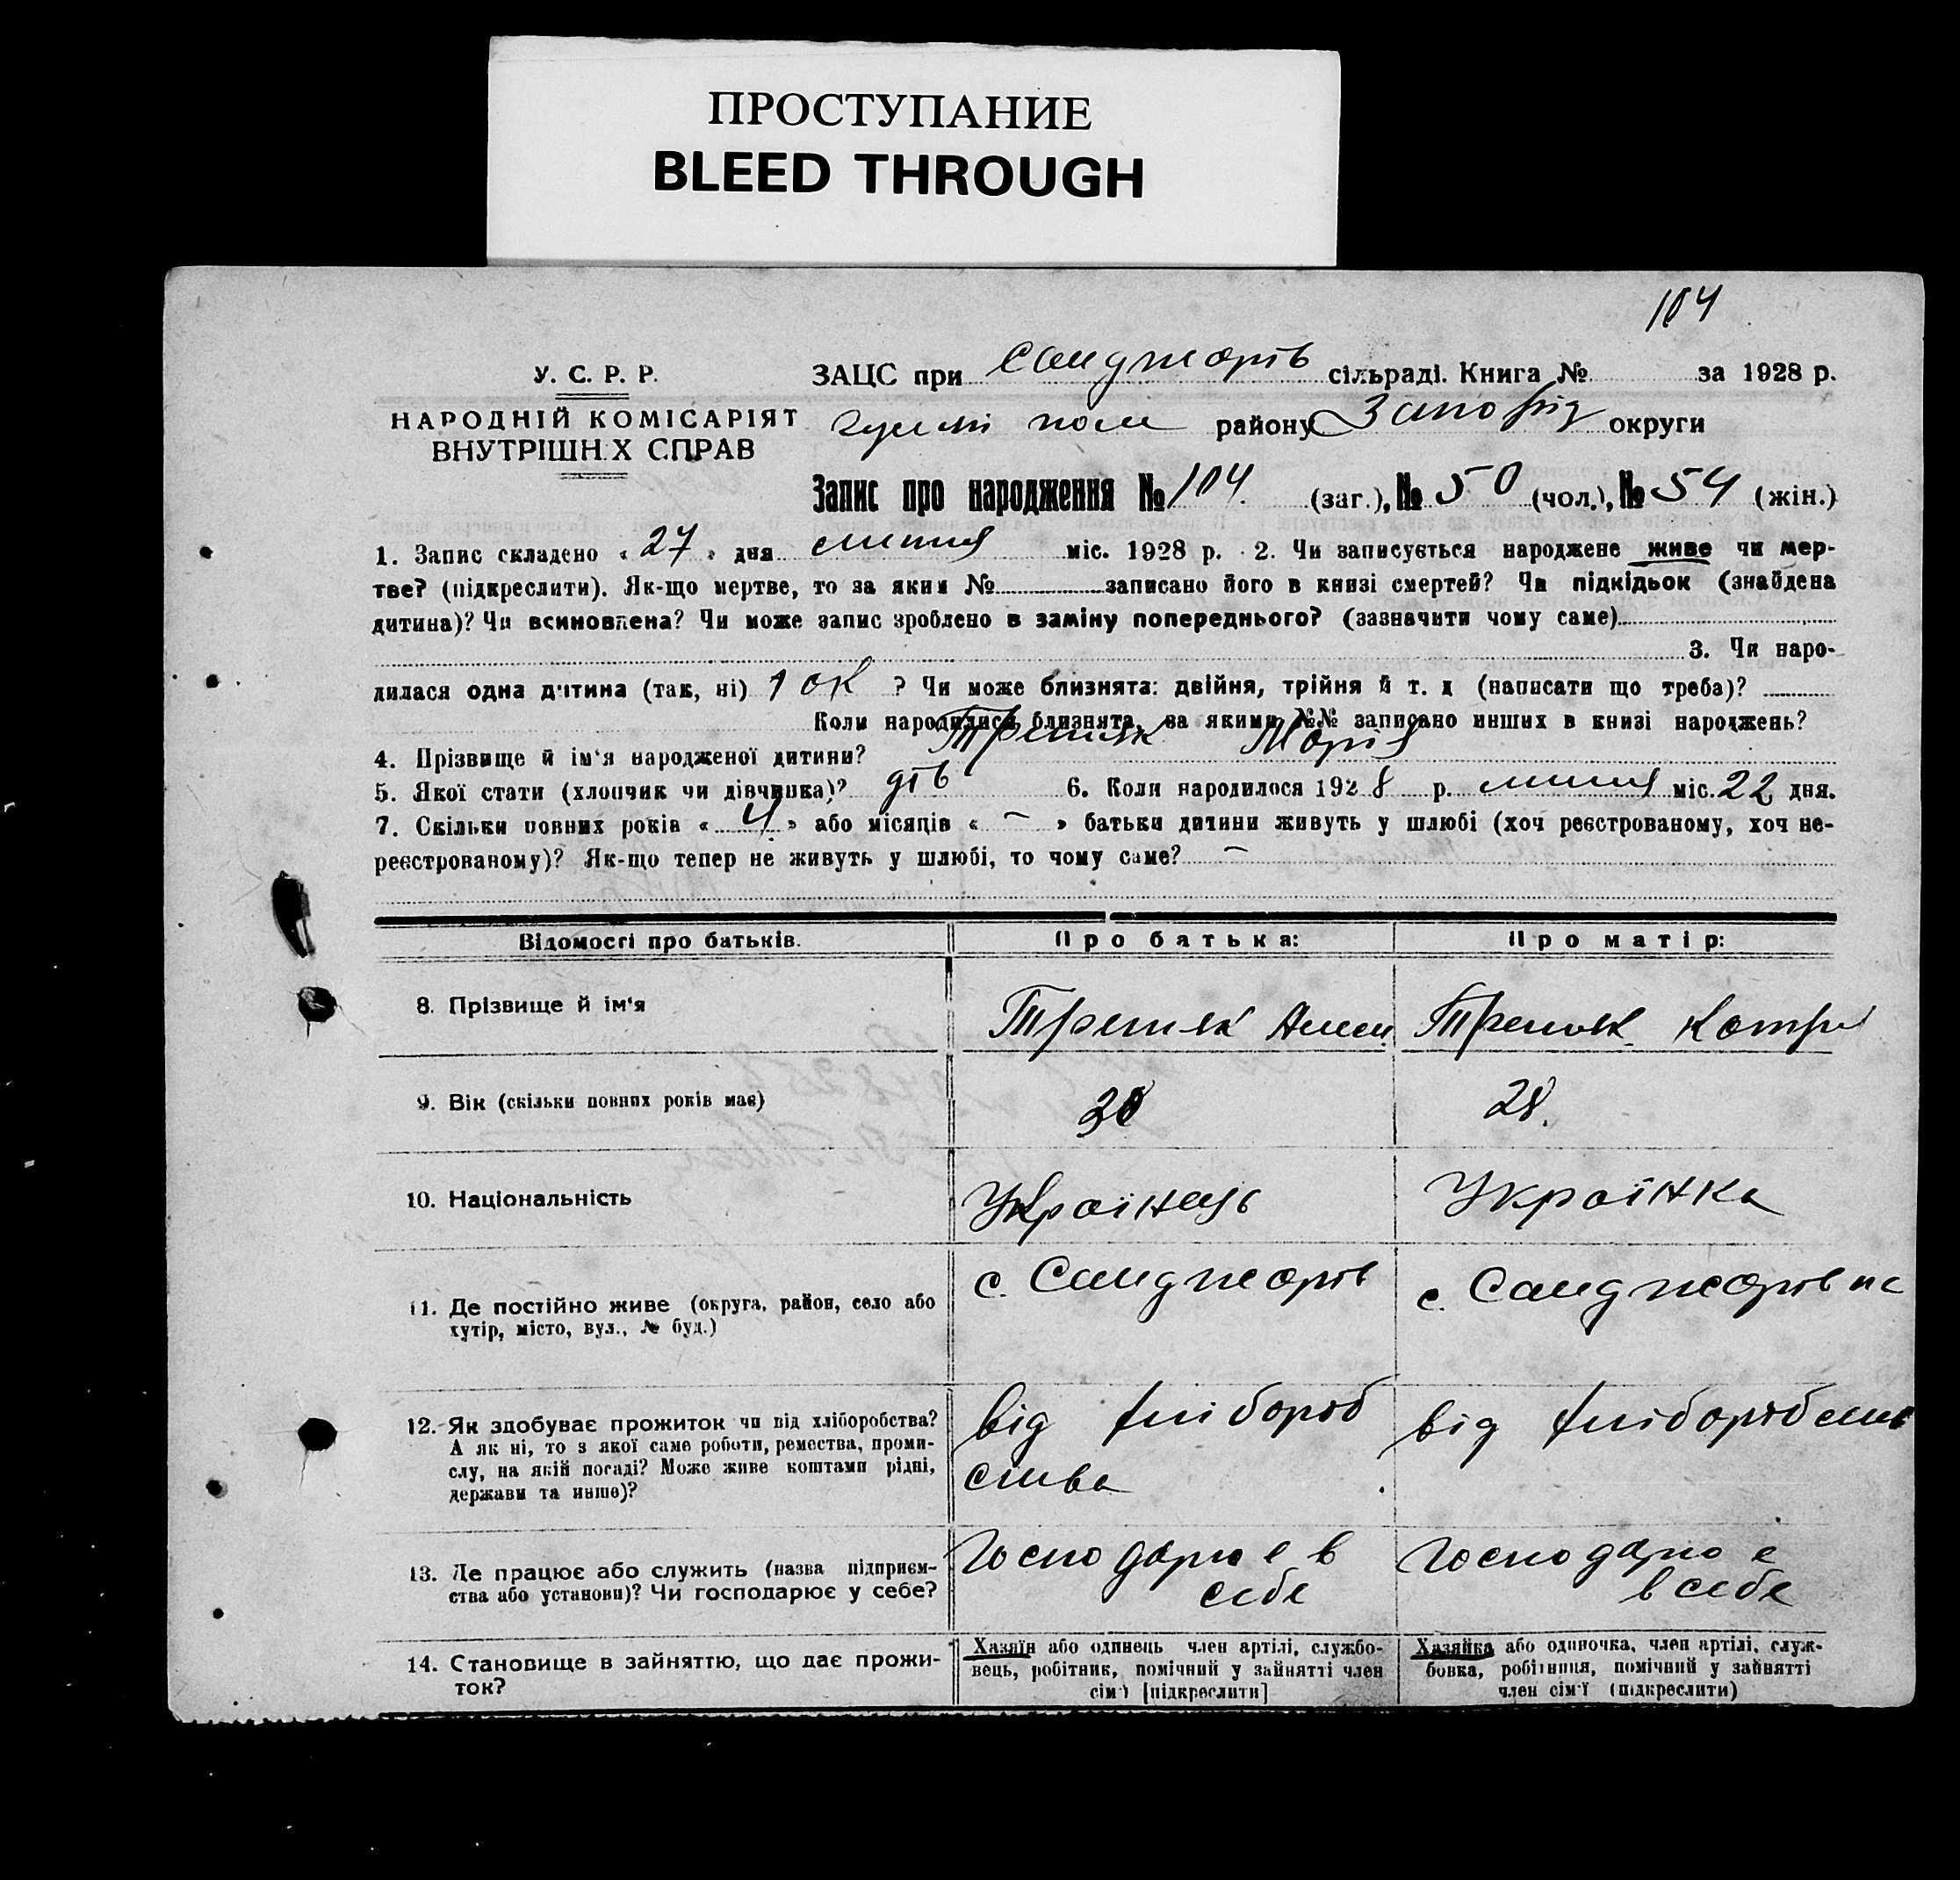 ПРОСТУПАНИЕ
BLEED THROUGH
104
У. С. Р. Р.
НАРОДНІЙ КОМІСАРІЯТ
ВНУТРІШН.Х СПРАВ
ЗАЦС при Санджарів сільраді. Книга № за 1928 р.
гуляй поле району Запоріз округи
Запис про народження № 104. (заг.), № 50 (чол.), № 54 (жін.)
1. Запис складено « 27 » дня липня міс. 1928 р. 2. Чи записується народжене живе чи мер-
тве? (підкреслити). Як-що мертве, то за яким № записано його в книзі смертей? Чи підкідьок (знайдена
дитина)? Чи всиновлена? Чи може запис зроблено в заміну попереднього? (зазначити чому саме)
3. Чи наро-
дилася одна дитина (так, ні) ? Чи може близнята: двійня, трійня й т. д (написати що треба)?
Коли народилися близнята, за якими №№ записано инших в книзі народжень?
4. Прізвище й ім'я народженої дитини? Третяк Марія
5. Якої стати (хлопчик чи дівчинка)? дів 6. Коли народилося 1928 р. липня міс. 22 дня.
7. Скільки повних років « 4 » або місяців « – » батьки дитини живуть у шлюбі (хоч реєстрованому, хоч не-
реєстрованому)? Як-що тепер не живуть у шлюбі, то чому саме? –
Відомості про батьків. Про батька: Про матір:
8. Прізвище й ім'я Третяк Третяк Катри
9. Вік (скільки повних років має) 28.
10. Національність Українець Українка
11. Де постійно живе (округа, район, село або
хутір, місто, вул., № буд.)
с. Санджарів
с. Санджарівна
12. Як здобуває прожиток чи від хліборобства?
А як ні, то з якої саме роботи, ремества, проми-
слу, на якій посаді? Може живе коштами рідні,
держави та инше)?
від хлібороб
ства
від хліборобств
13. Де працює або служить (назва підприєм-
ства або установи)? Чи господарює у себе?
Господарює в
себе
Господарює
в себе
14. Становище в зайняттю, що дає прожи-
ток?
Хазяїн або одинець член артілі, службо-
вець, робітник, помічний у зайнятті член
сім'ї [підкреслити]
Хазяйка або одиночка, член артілі, служ-
бовка, робітниця, помічний у зайнятті
член сім'ї (підкреслити)